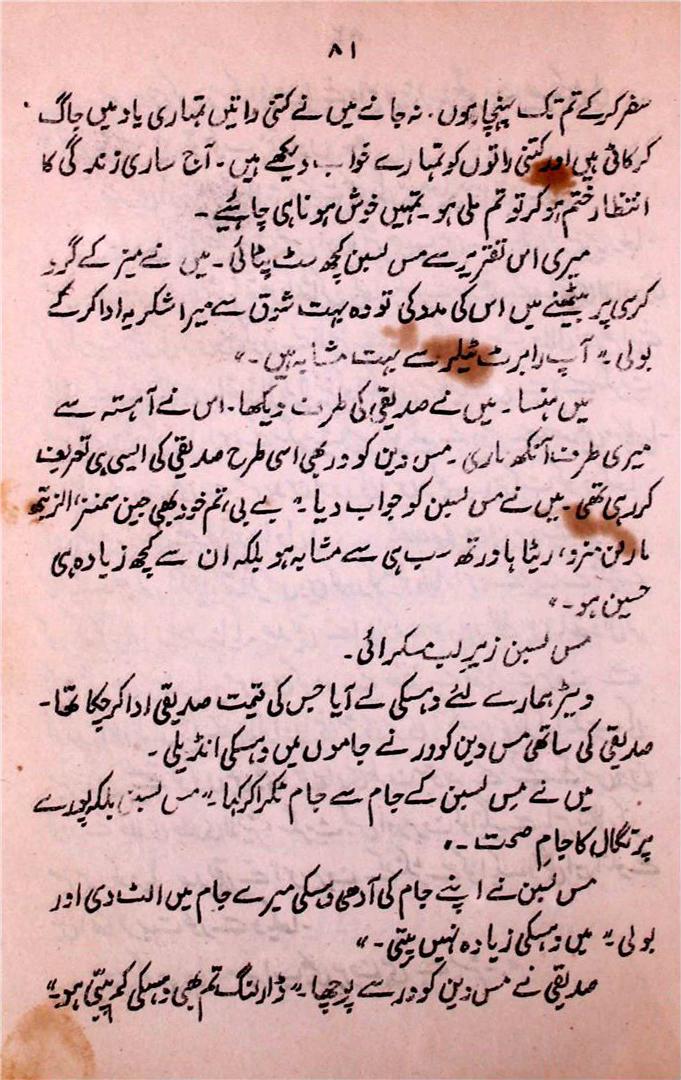 ۸۱
سفر کر کے تم تک پہنچا ہوں۔ نہ جانے میں نے کتنی راتیں تمہاری یاد میں جاگ
کر کاٹی ہیں اور کتنی راتوں کو تمہارے خواب دیکھے ہیں۔ آج ساری زندگی کا
انتظار ختم ہو کر تو تم ملی ہو۔ تمہیں خوش ہونا ہی چاہئیے۔
میری اس تقریر سے مس لسبن کچھ سٹ پٹائی۔ میں نے میز کے گرد
کرسی پر بیٹھنے میں اس کی مدد کی تو وہ بہت شوق سے میرا شکریہ ادا کر کے
بولی۔ "آپ رابرٹ ٹیلر سے بہت مشابہ ہیں۔"
میں ہنسا۔ میں نے صدیقی کی طرف دیکھا۔ اس نے آہستہ سے
میری طرف آنکھ ماری۔ مس دین کوور بھی اسی طرح صدیقی کی ایسی ہی تعریف
کر رہی تھی۔ میں نے مس لسبن کو جواب دیا۔ "بے بی، تم خود بھی جین سمنز، الزبتھ
مارلن منرو، ریٹا ہاورتھ سب ہی سے مشابہ ہو بلکہ ان سے کچھ زیادہ ہی
حسین ہو۔"
مس لسبن زیر لب مسکرائی۔
ویٹر ہمارے لئے وہسکی لے آیا جس کی قیمت صدیقی ادا کر چکا تھا۔
صدیقی کی ساتھی مس دین کوور نے جاموں میں وہسکی انڈیلی۔
میں نے مس لسبن کے جام سے جام ٹکرا کر کہا۔ "مس لسبن بلکہ پورے
پرتگال کا جامِ صحت۔"
مس لسبن نے اپنے جام کی آدھی وہسکی میرے جام میں الٹ دی اور
بولی۔ "میں وہسکی زیادہ نہیں پیتی۔"
صدیقی نے مس دین کوور سے پوچھا۔ "ڈارلنگ تم بھی وہسکی کم پیتی ہو۔"